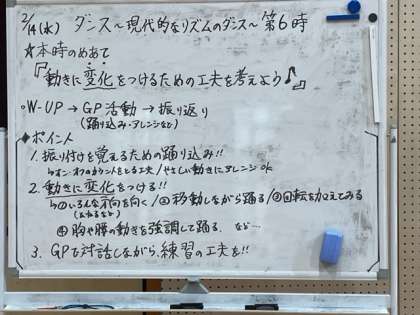 2/14(水) ダンス～現代的なリズムのダンス～第6時
☆本時のめあて
『動きに変化をつけるための工夫を考えよう♪』
○W-UP → GP活動 → 振り返り
(踊り込み・アレンジなど)
◆ポイント
1. 振り付けを覚えるための踊り込み!!
↳オン・オフのカウントをとる工夫/やさしい動きにアレンジOK
2. 動きに変化をつける!!
↳①いろんな方向を向く/②移動しながら踊る/③回転を加えてみる
④胸や腰の動きを強調して踊る、など…
3. GPで対話しながら、練習の工夫を!!